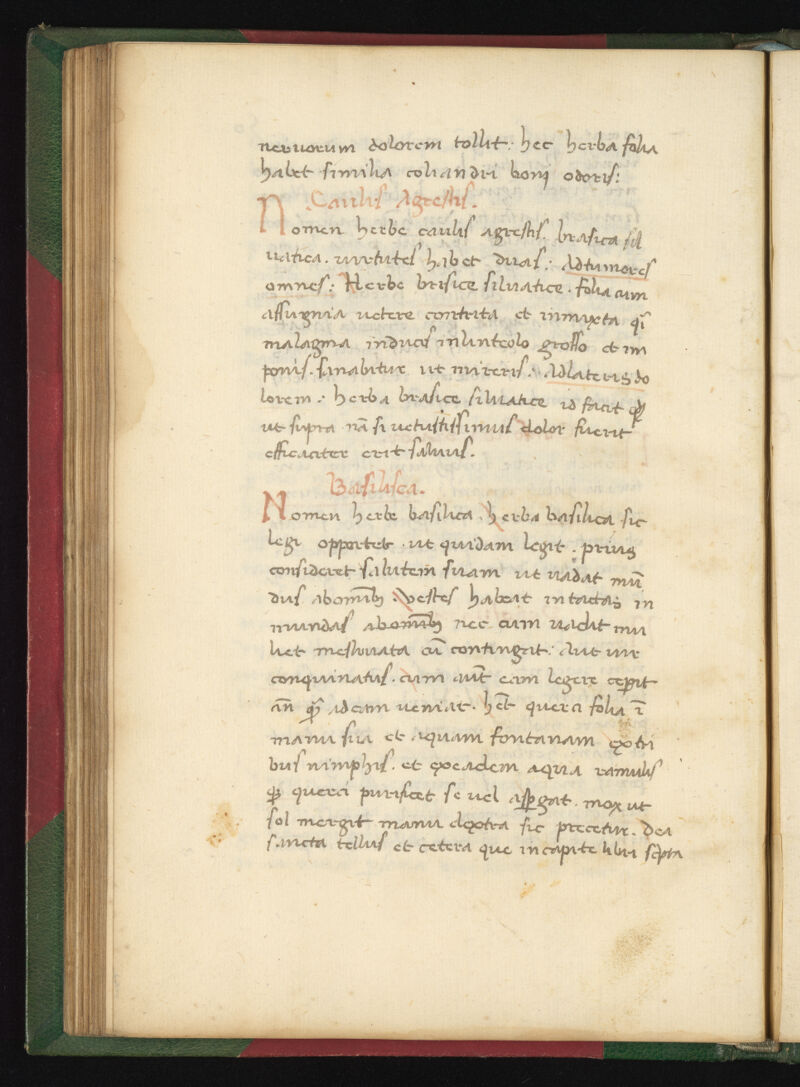 neruorum dolorem tollit. hec herba folia
habet similia coliandri boni odoris:
Caulis Agrestis.
Nomen herbe caulis agrestis. brasica sil
uatica. uirtutes habet duas: Ad tumores
omnes: Herbe brisice siluatice. folia cum
assugnia uetere contrita et inmixta q̄
malagma inducis in linteolo grosso et im
ponis. sanabitur ut mireris: Ad lateris do
lorem: herba brasice siluatice id facit qđ
ut supra nā si uetustissimus dolor fuerit
efficaciter erit saluus.
Basilisca.
Nomen herbe basilica. herba basilica sic
legi opportet. ut quidam legit. prius
consideret salutem suam ut uadat mū
dus ab omĩbꝰ. Vestes habeat intactas in
mundas ab omĩbꝰ nec cum uadit mu
liet mestruata cū contingat: Aut uir
conquinatus. cum aūt eam legere ceperit
añ q̄ ad eam ueniat. het querci folia ī
manu sua et aquam fontanam
bus nimphis. et ex eadem aqua ramulis
querci purificet se uel aspergat. mox ut
sol mergit manu dextra sic precetur. Dea
sancta tellus et cetera que in capite libri scpta